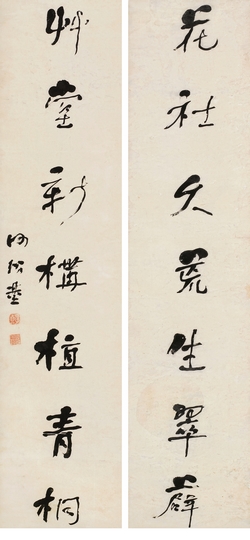 花社久荒生翠薜
艸堂新構植青桐
何紹基